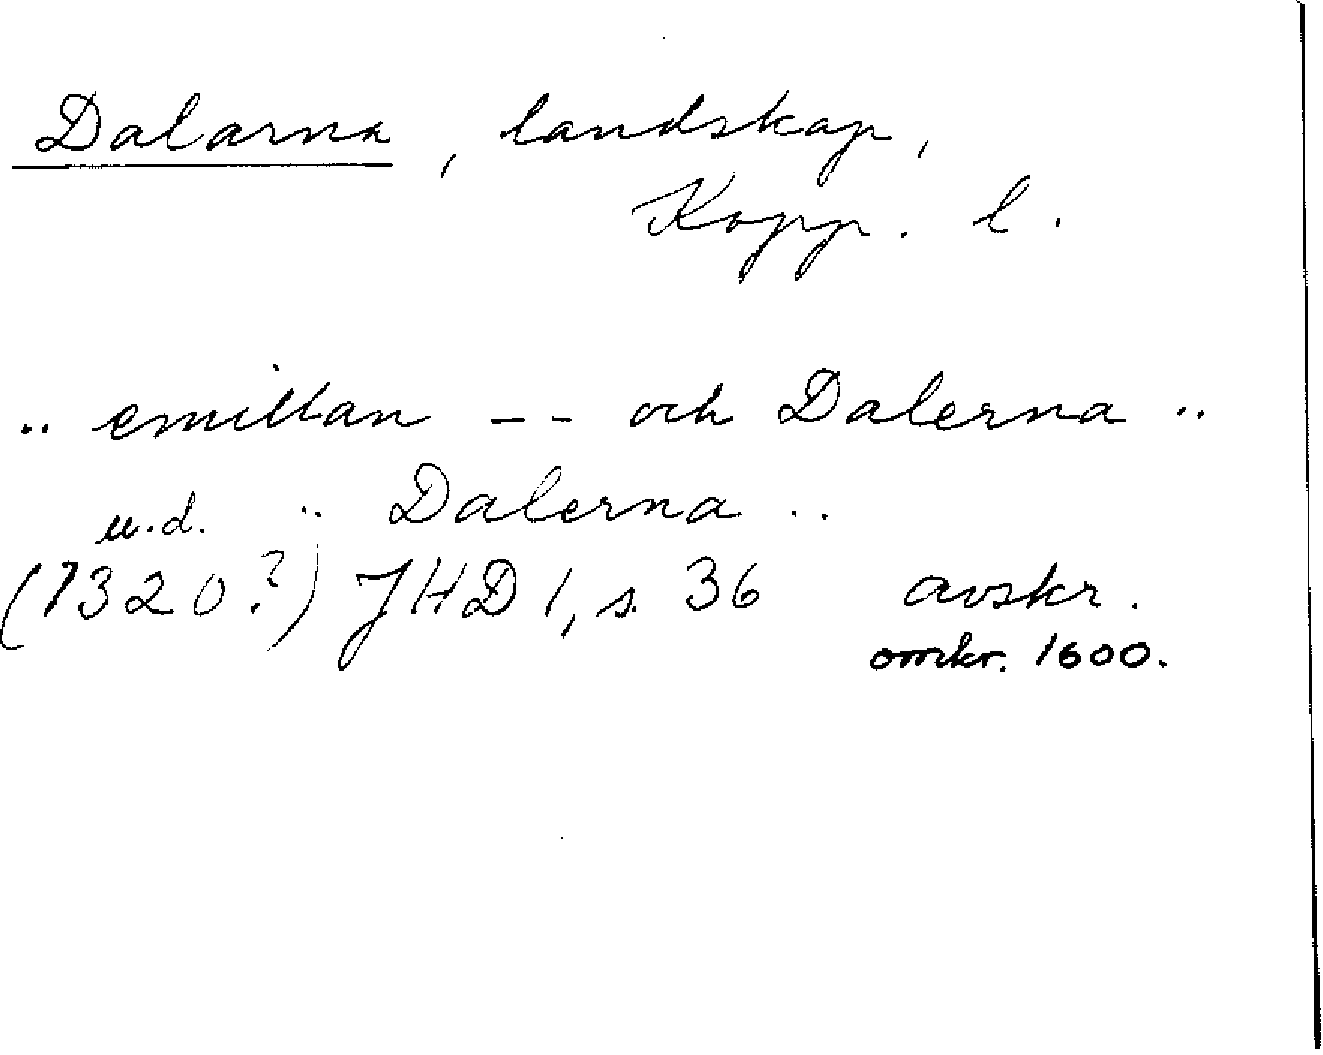 Dalarna, landskap,
Kopp. l.
.. emillan -- och Dalerna ..
u.d. .. Dalerna ..
(1320?) JHD 1, s. 36 avskr.
omkr. 1600.